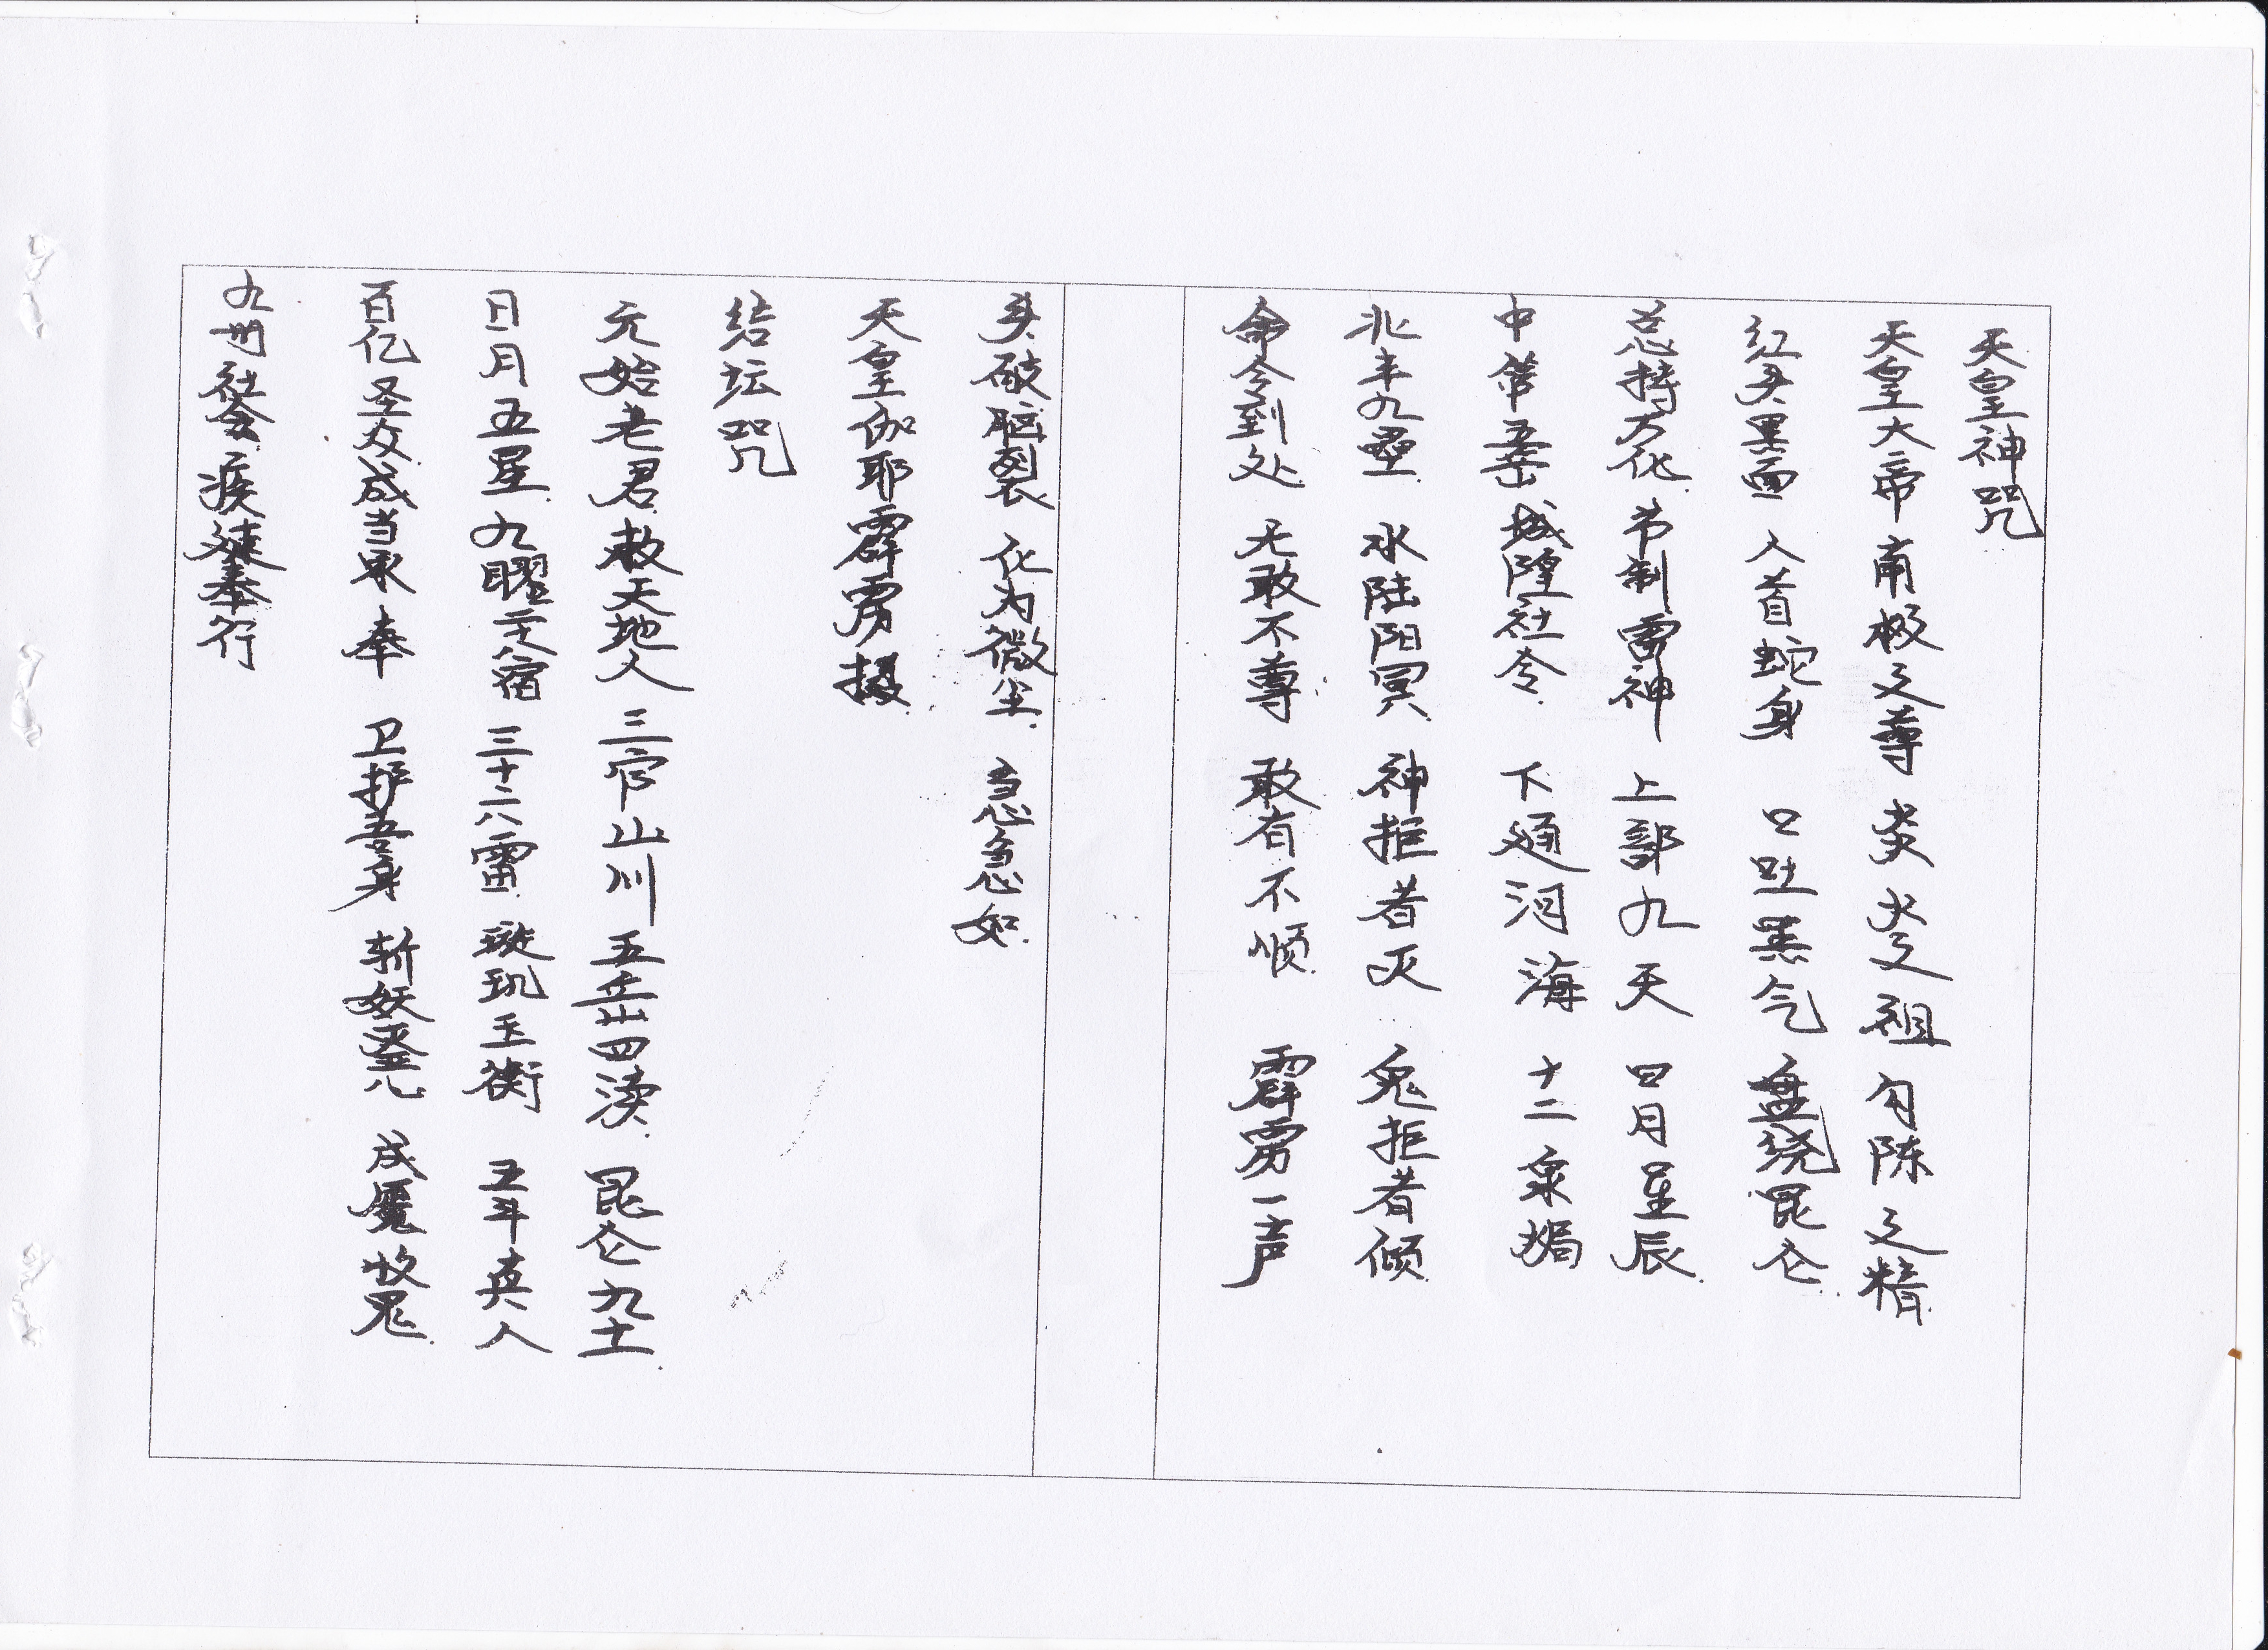 天皇神咒
天皇大帝 南极之尊 炎炎之祖 勾陈之精
红头黑面 人首蛇身 口吐黑气 盘绕昆仑
总持万化 节制雷神 上部九天 日月星辰
中管五岳 城隍社令 下通河海 十二泉扃
北丰九垒 水陆阳冥 神拒者灭 鬼拒者倾
命令到处 无敢不尊 敢有不顺 霹雳一声
头破脑裂 化为微尘 急急如
天皇伽耶霹雳摄
结坛咒
元始老君 敕天地人 三官山川 五岳四渎 昆仑九土
日月五星 九曜 宿 三十六雷 璇玑玉衡 五斗真人
百亿圣众 咸当承奉 卫护吾身 斩妖 魔 鬼
九州社会 疾速奉行